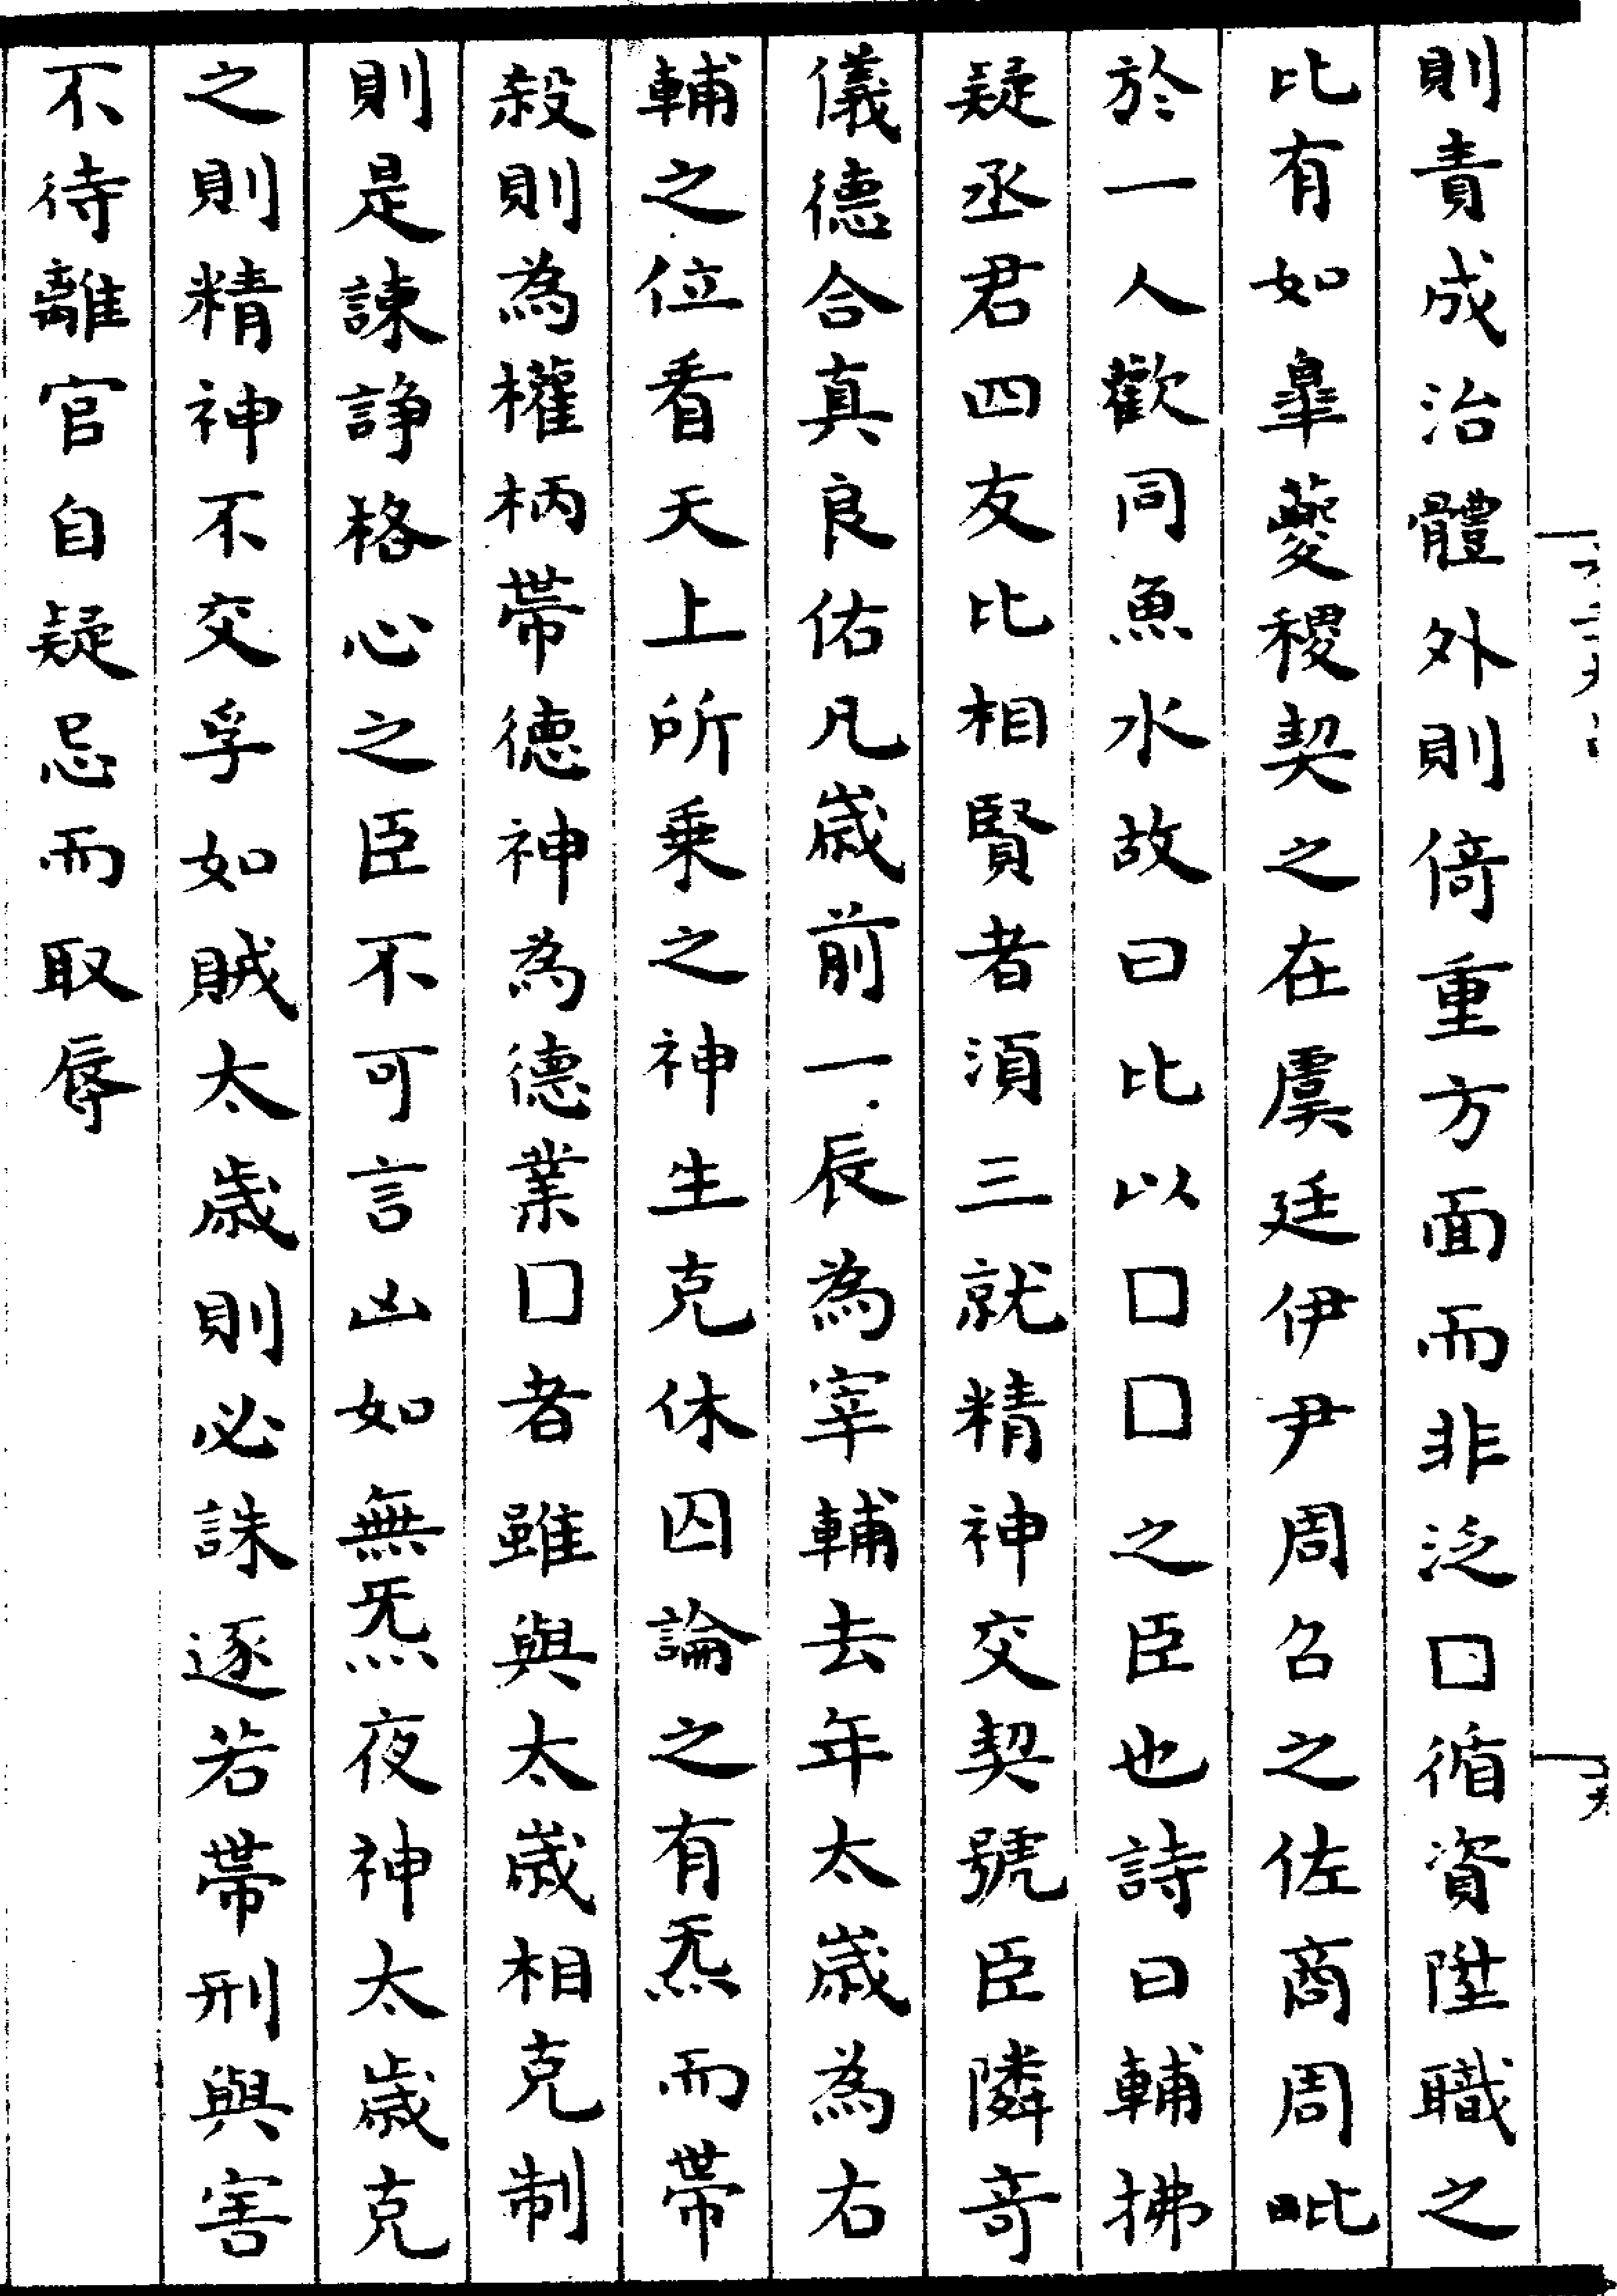 則責成治體外則倚重方面而非泛□循資陞職之
比有如臯夔稷契之在虞廷伊尹周召之佐商周毗
於一人歡同魚水故曰比以□□之臣也詩曰輔拂
疑丞君四友比相賢者須三就精神交契號臣隣奇
儀德合真良佑凡歲前一辰為宰輔去年太歲為右
輔之位看天上所乗之神生克休囚論之有炁而帶
殺則為權柄帶德神為德業□者雖與太歲相克制
則是諌諍格心之臣不可言凶如無炁夜神太歲克
之則精神不交孚如賊太歲則必誅逐若帶刑與害
不待離官自疑忌而取辱